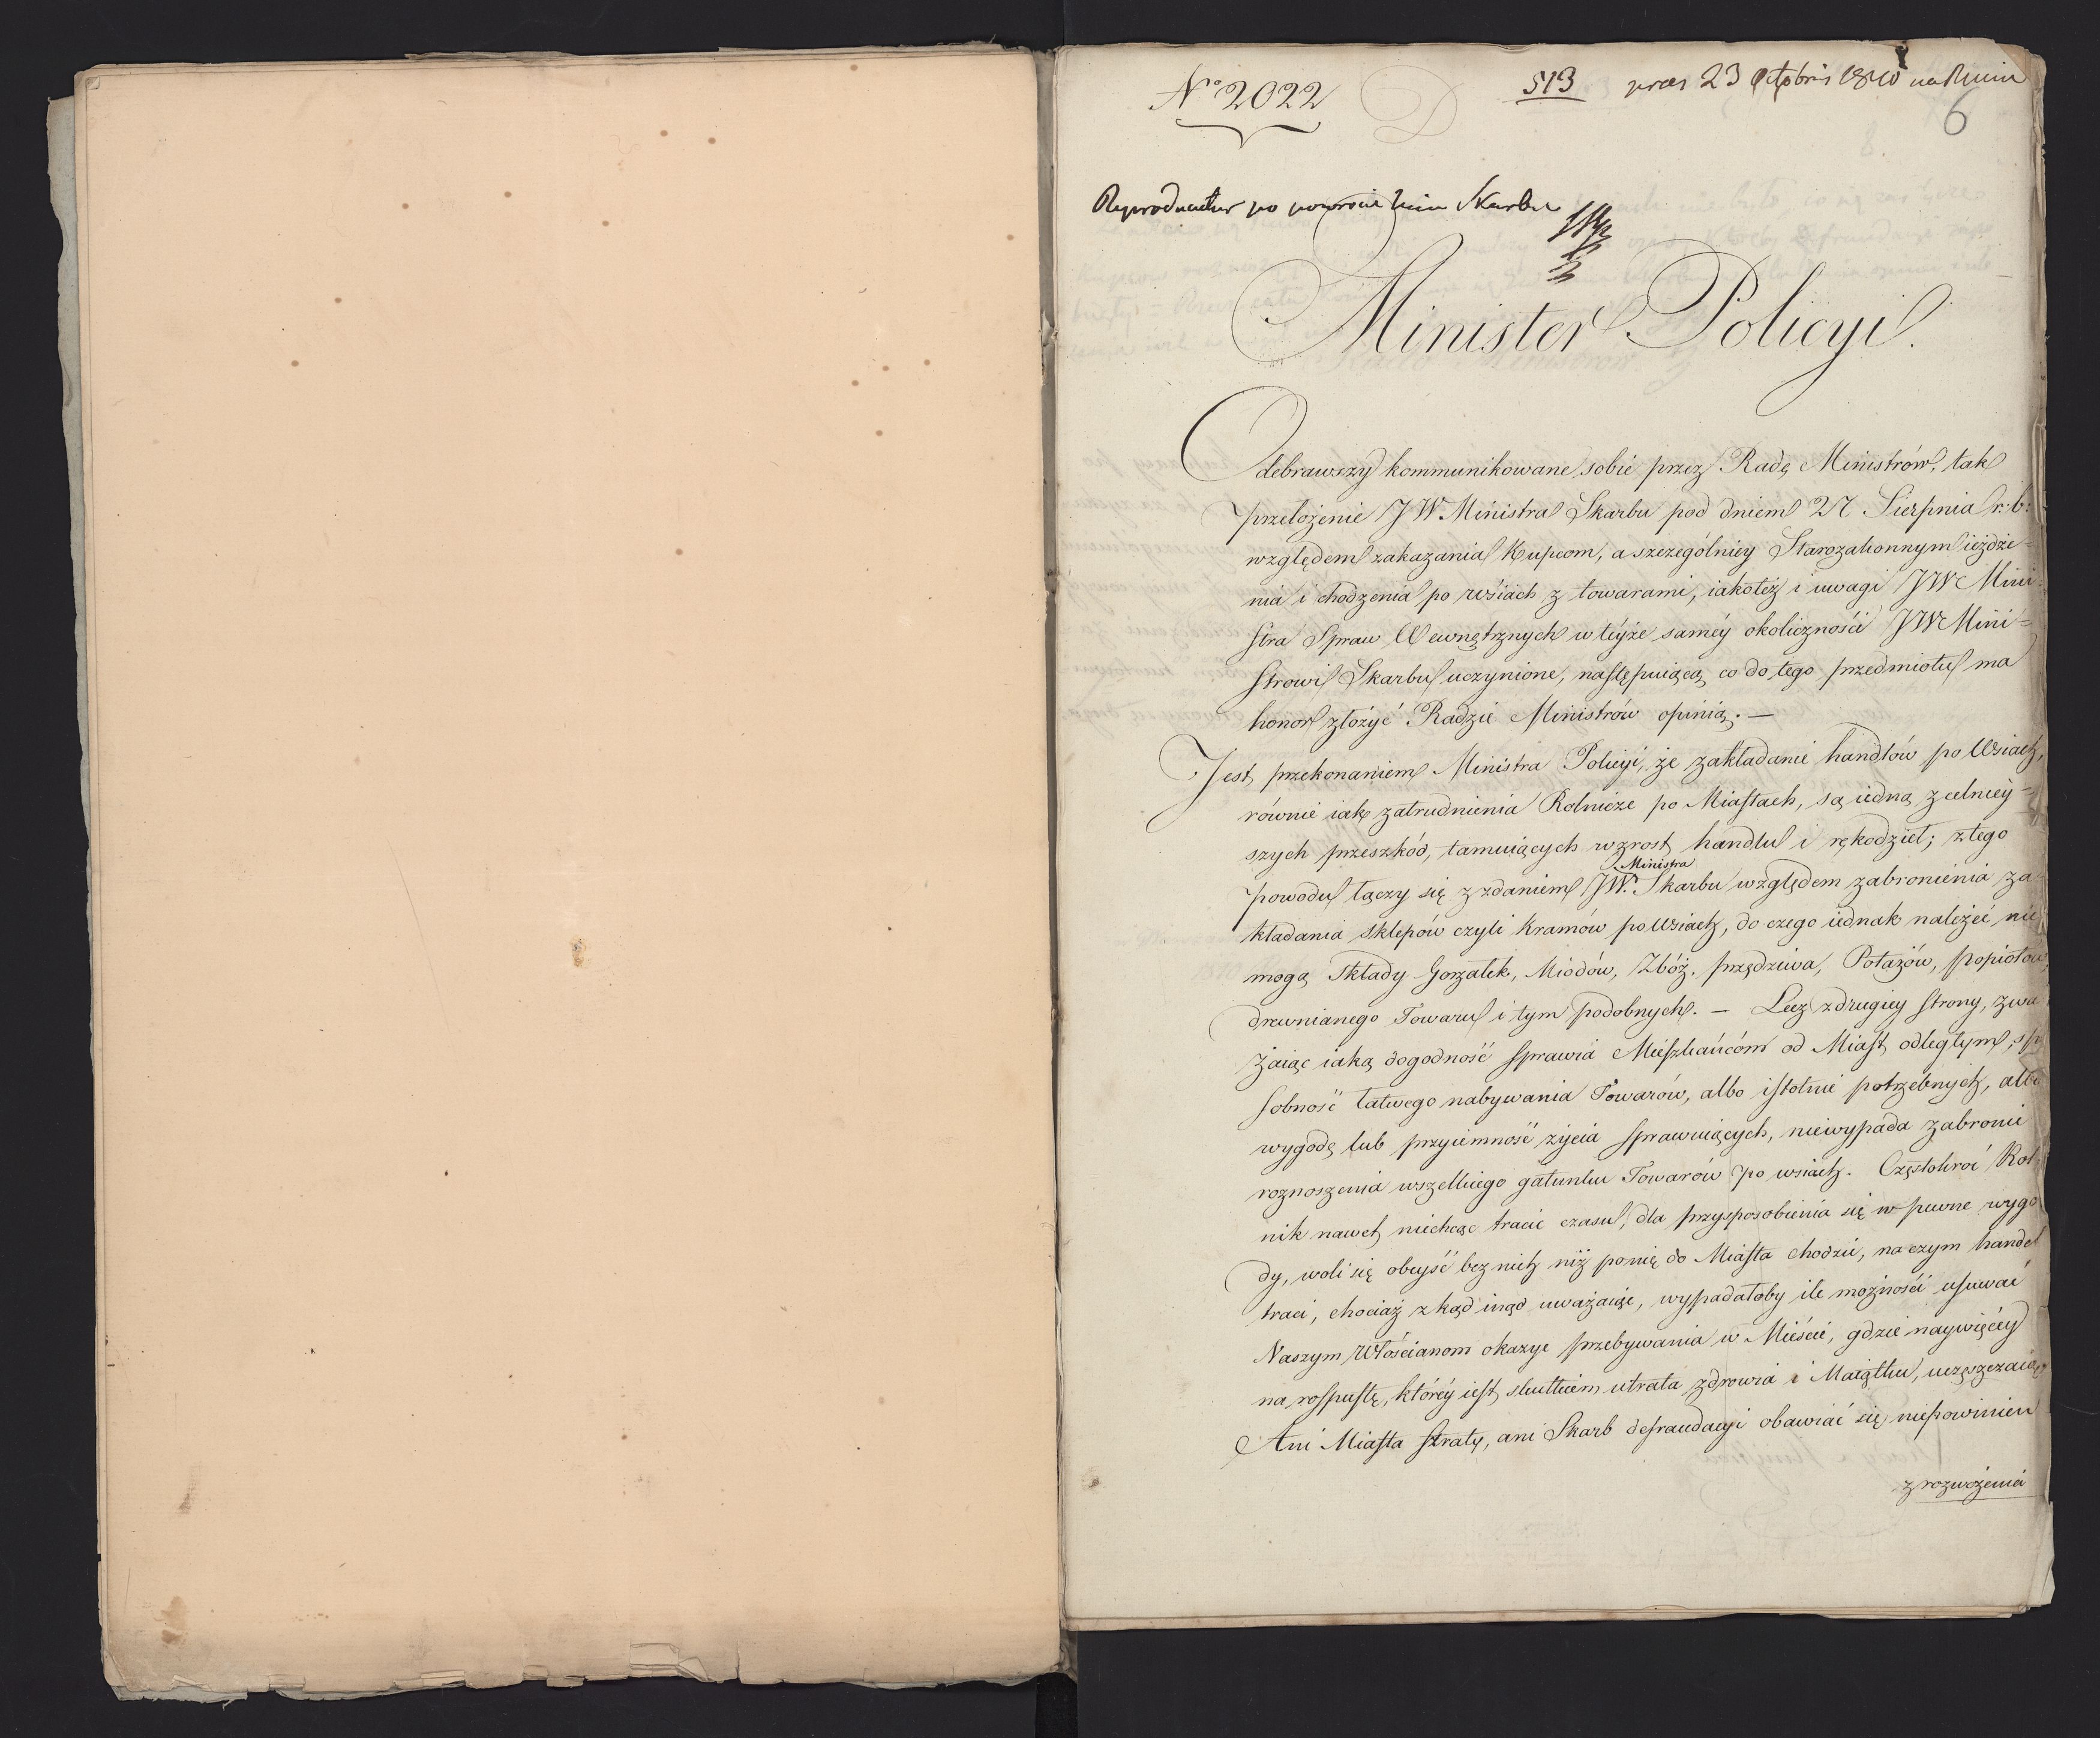 No 2022
513 praes 23 Octobris 1810 na Minis
6
Reproducatur po powrocie Min Skarbu
Minister Policyi.
Odebrawszy kommunikowane sobie przez Radę Ministrów, tak
przełożenie JW. Ministra Skarbu pod dniem 27 Sierpnia r: b:
względem zakazania Kupcom, a szczególniey Starozakonnym ieżdże=
nia i chodzenia po wśiach z towarami, iakoteż i uwagi JW Mini=
stra Spraw Wewnętrznych w teyże saméy okolicznośći JW Mini=
strowi Skarbu uczynione, następuiącą co do tego przedmiotu ma
honor złożyć Radzie Ministrów opinią. —
Jest przekonaniem Ministra Policyi, że zakładanie handlów po Wsiach,
równie iak zatrudnienia Rolnicze po Miastach, są iedną z celniey=
szych przeszkód, tamuiących wzrost handlu i rękodzieł; z tego
powodu łączy się z zdaniem JW. Ministra Skarbu względem zabronienia za=
kładania sklepów czyli Kramów po Wsiach, do czego iednak należeć nie
mogą Składy Gorzałek, Miodów, Zbóż, przędziwa, Potażów, popiołów,
drewnianego Towaru i tym podobnych. — Lecz z drugiey strony, zwa
żaiąc iaką dogodność sprawia Mieszkańcom od Miast odległym, spo
sobność łatwego nabywania Towarów, albo istotnie potrzebnych, albo
wygodę lub przyiemność życia sprawuiących, niewypada zabronić
roznoszenia wszelkiego gatunku Towarów po wsiach. Częstokroć Rol=
nik nawet niechcąc tracić czasu, dla przysposobienia się w pewne wygo
dy, woli się obeyść bez nich niż po nię do Miasta chodzić, na czym handel
traci, chociaż z kąd inąd uważaiąc, wypadałoby ile możnośći usuwać
Naszym Włościanom okazye przebywania w Mieście, gdzie naywięcéy
na rospustę, któréy iest skutkiem utrata zdrowia i Maiątku, uczęszczaią
Ani Miasta straty, ani Skarb defraudacyi obawiać się niepowinien
z rozwożenia